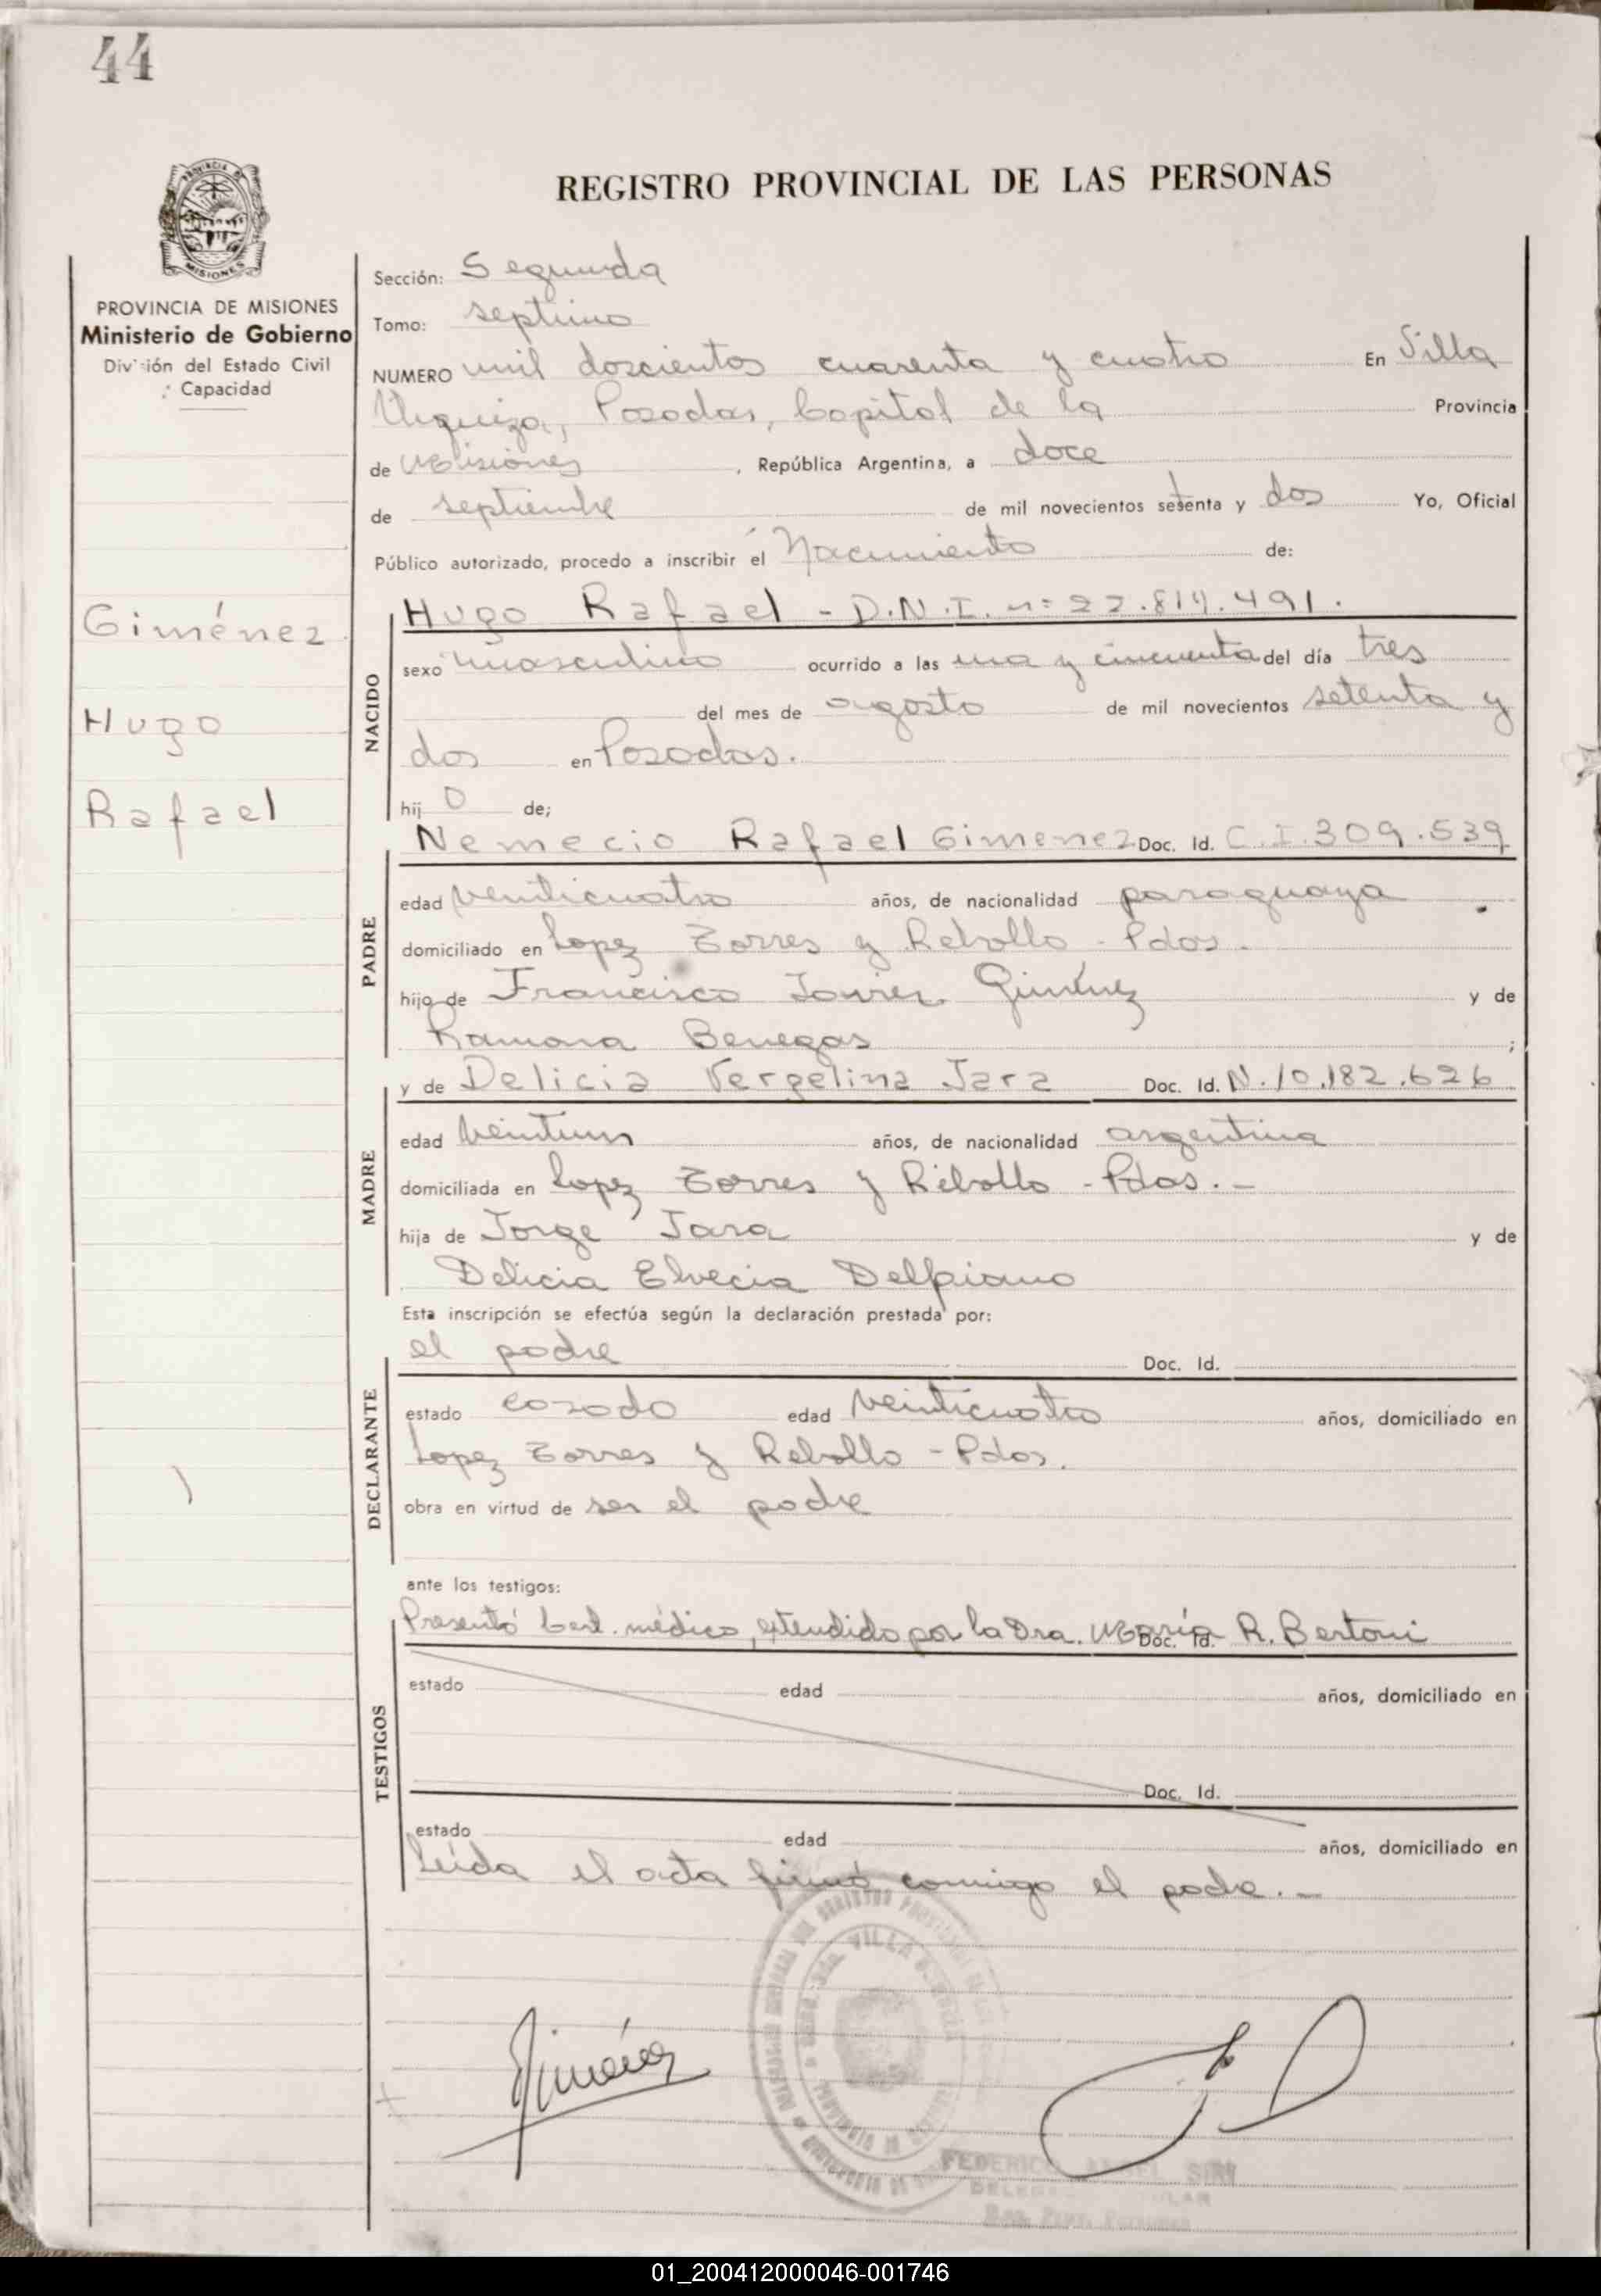 44
REGISTRO PROVINCIAL DE LAS PERSONAS
PROVINCIA DE MISIONES
Ministerio de Gobierno
División del Estado Civil
Capacidad
Giménez
Hugo
Rafael
Sección: Segunda
Tomo: septimo
NUMERO mil doscientos cuarenta y cuatro En Villa
Urquiza, Posadas, Capital de la Provincia
de Misiones, República Argentina, a doce
de septiembre de mil novecientos setenta y dos Yo, Oficial
Público autorizado, procedo a inscribir el Nacimiento de:
NACIDO
Hugo Rafael - D.N.I. nº 22.814.491.
sexo masculino ocurrido a las una y cincuenta del día tres
del mes de agosto de mil novecientos setenta y
dos en Posadas.
hij o de;
PADRE
Nemecio Rafael Gimenez Doc. Id. C.I. 309.539
edad venticuatro años, de nacionalidad paraguaya
domiciliado en Lopez Torres y Rebollo - Pdas.
hijo de Francisco Javier Giménez y de
Ramona Benegas ;
MADRE
y de Delicia Vergelina Jara Doc. Id. N. 10.182.626
edad veintiun años, de nacionalidad argentina
domiciliada en Lopez Torres y Rebollo - Pdas. -
hija de Jorge Jara y de
Delicia Elvecia Delpiano
Esta inscripción se efectúa según la declaración prestada por:
DECLARANTE
el padre Doc. Id.
estado casado edad veinticuatro años, domiciliado en
Lopez Torres y Rebollo - Pdas.
obra en virtud de ser el padre
ante los testigos:
TESTIGOS
Presentó Cert. médico, extendido por la Dra. María R. Bertoni Doc. Id.
estado edad años, domiciliado en
Doc. Id.
estado edad años, domiciliado en
Leida el acta firmó conmigo el padre. -
Giménez
VILLA
FEDERICO ANGEL
01_200412000046-001746